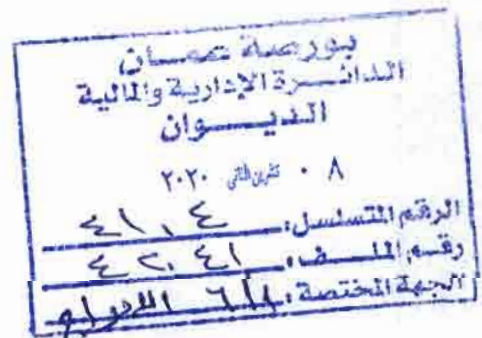 بورصة عمان
الدائرة الإدارية والمالية
الديوان
٠٨ تشرين الثاني ٢٠٢٠
الرقم المتسلسل: ٤١٠٤
رقم الملف: ٤٢٠٤١
الجهة المختصة: